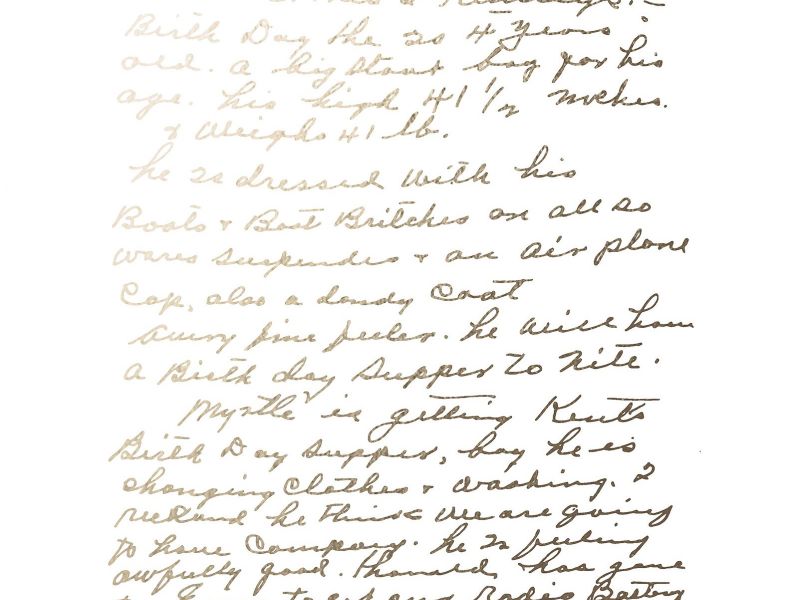 Birth Day the is 4 years
old. a big stout boy for his
age. his high 41 1/2 inches.
& weighs 41 lb.
he is dressed with his
Boots & Best Britches on also
wares suspendes & an air plane
Cap, also a dandy Coat
a very fine feeler. he will have
a Birth day supper to nite.
Myrtle is getting Kents
Birth Day supper, boy he is
changing Clothes & washing. I
reckond he think we are going
to have Company. he is feeling
awfully good. Thonald, has gone
to get our Radio Battery